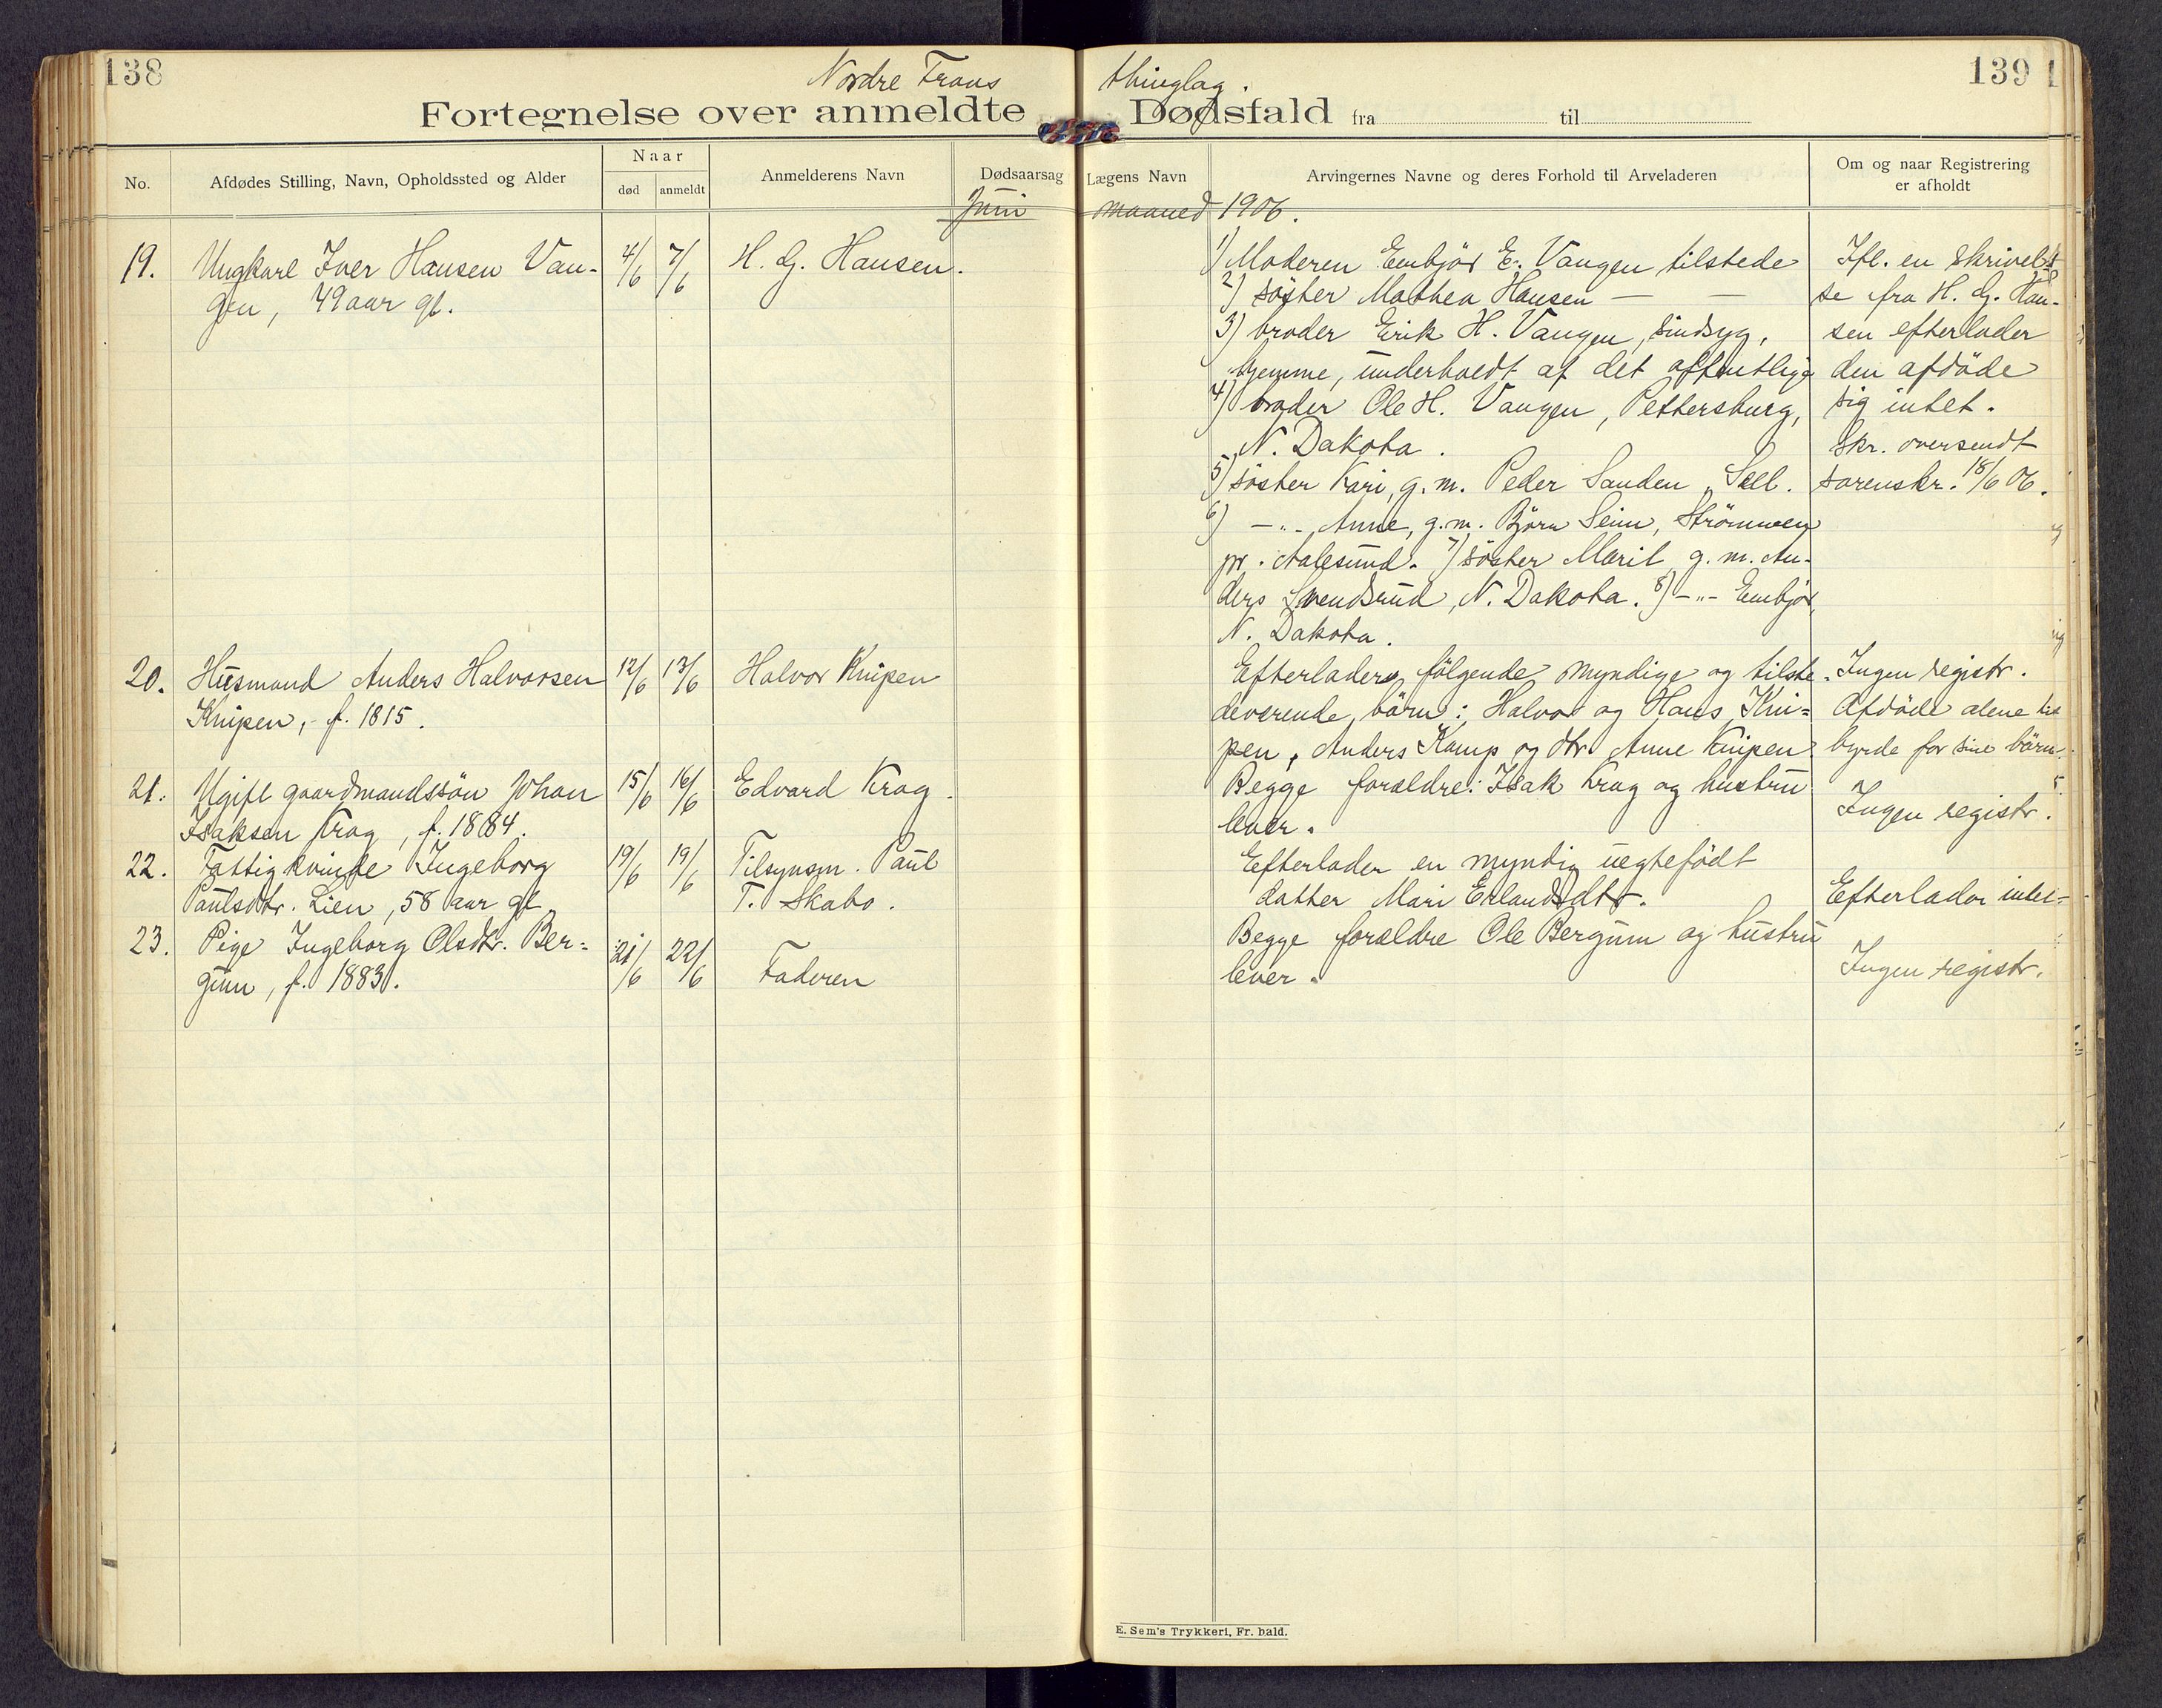 138
139
Nordre Frons thinglag.
Fortegnelse over anmeldte Dødsfald fra til
No.
Afdødes Stilling, Navn, Opholdssted og Alder
Naar
død
anmeldt
Anmelderens Navn
Dødsaarsag
Lægens Navn
Arvingernes Navne og deres Forhold til Arveladeren
Om og naar Registrering
er afholdt
Juni maaned 1906.
19.
Ungkarl Iver Hansen Van-
gen, 49 aar gl.
4/6
7/6
H. G. Hansen.
1) Moderen Embjør E. Vangen tilstede
2) søster Mathea Hansen — —
3) broder Erik H. Vangen, sindsyg,
hjemme, underholdt af det offentlige
4) broder Ole H. Vangen, Pettersburg,
N. Dakota.
5) søster Kari, g. m. Peder Sanden, Sell.
6) -"- Anne, g. m. Bjørn Seim, Strømmen
pr. Aalesund. 7) søster Marit g. m. An-
ders Svendsrud, N. Dakota. 8) -"- Embjør,
N. Dakota.
Ifl. en skrivel-
se fra H. G. Han-
sen efterlader
den afdøde
sig intet.
Skr. oversendt
sorenskr. 18/6 06.
20.
Husmand Anders Halvorsen
Knipen, f. 1815.
12/6
13/6
Halvor Knipen
Efterlader følgende myndige og tilste-
deværende børn: Halvor og Hans Kni=
pen, Anders Kamp og dtr. Anne Knipen.
Ingen registr.
Afdøde alene til
byrde for sine børn.
21.
Ugift gaardmandssøn Johan
Isaksen Krog, f. 1884.
15/6
16/6
Edvard Krog.
Begge forældre: Isak Krog og hustru
lever.
Ingen registr.
22.
Fattigkvinde Ingeborg
Paulsdtr. Lien, 58 aar gl.
19/6
19/6
Tilsynsm. Paul
T. Skabo.
Efterlader en myndig uegtefødt
datter Mari Erlandsdtr.
Efterlader intet
23.
Pige Ingeborg Olsdtr. Ber=
gum, f. 1883.
21/6
22/6
Faderen
Begge forældre Ole Bergum og hustru
lever.
Ingen registr.
E. Sem's Trykkeri, Fr. hald.